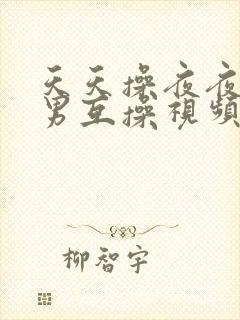 天天操夜夜
男互操視頻
柳智宇